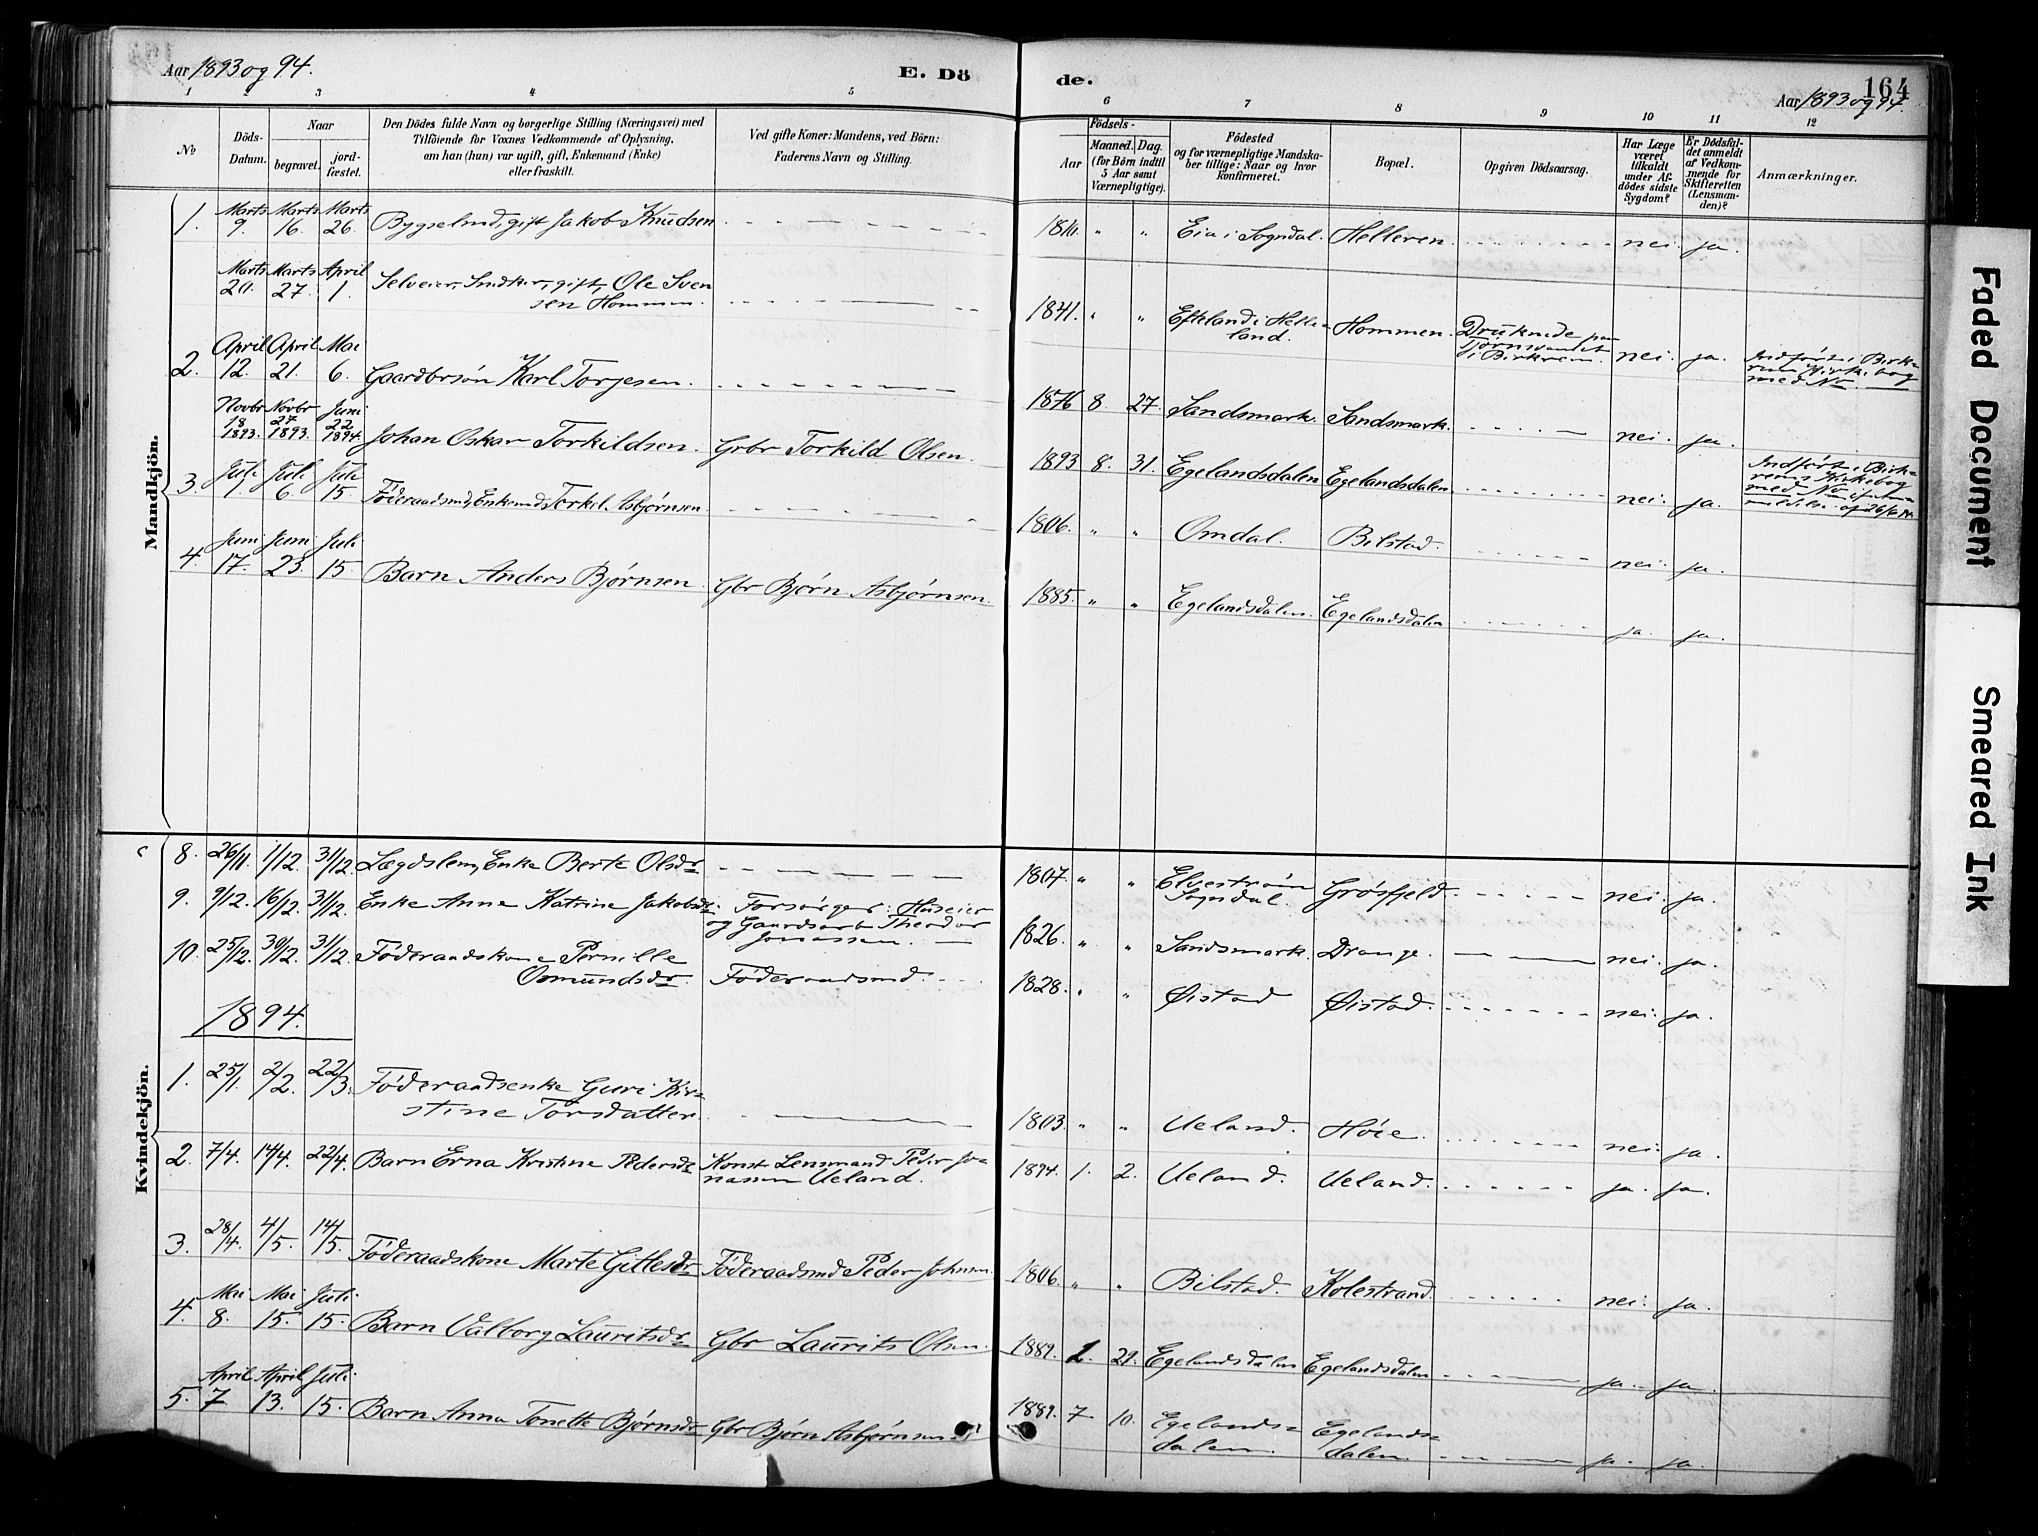 Aar 1893 og 94.
E. Dö
de.
164
Aar 1893 og 94.
1 2 3 4 5 6 7 8 9 10 11 12
No
Döds-Datum.
Naar
begravet.
jord-fæstet.
Den Dödes fulde Navn og borgerlige Stilling (Næringsvei) med
Tilföiende for Voxnes Vedkommende af Oplysning,
om han (hun) var ugift, gift, Enkemand (Enke)
eller fraskilt.
Ved gifte Koner: Mandens, ved Börn:
Faderens Navn og Stilling.
Födsels-
Aar
Maaned. Dag.
(for Börn indtil
5 Aar samt
Værnepligtige).
Födested
og for værnepligtige Mandska-
ber tillige: Naar og hvor
konfirmeret.
Bopæl.
Opgiven Dödsaarsag.
Har Læge
været
tilkaldt
under Af-
dödes sidste
Sygdom?
Er Dödsfal-
det anmeldt
af Vedkom-
mende for
Skifteretten
(Lensman-
den)?
Anmærkninger.
Mandkjön.
1. Marts 9. Marts 16. Marts 26. Bygselmd, gift Jakob Knudsen " " Eia i Sogndal. Helleren. nei. ja.
Marts 20. Marts 27. April 1. Selveier, Snidker, gift, Ole Sven
sen Hommen. 1841. " " Efteland i Helle-
land. Hommen. Druknede paa
Tjørnsvandet
i Birkrem. nei. ja. Indført i Birk-
rem Kirkebog
med No
2. April 12. April 21. Mai 6. Gaardbrsøn Karl Torjesen. 1876 8. 27. Sandsmark. Sandsmark. nei. ja.
Novbr 18 1893. Novbr 27 1893. Juni 22 1894. Johan Oskar Torkildsen. Grbr Torkild Olsen. 1893 8. 31. Egelandsdalen Egelandsdalen nei. ja. Indført i Birk-
rems Kirkebog
med No
3. Juli 1. Juli 6. Juli 15. Føderaadsmd, Enkemd Torkil Asbjørnsen 1806. " " Omdal. Bilstad. nei. ja.
4. Juni 17. Juni 23. Juli 15. Barn Anders Bjørnsen. Gbr Bjørn Asbjørnsen 1885. " " Egelandsdalen. Egelandsdalen ja. ja.
Kvindekjön.
8. 26/11. 1/12. 31/12. Lægdslem, Enke Berte Olsdr 1807. " " Elvestrøm
Sogndal. Grøsfjeld. nei. ja.
9. 9/12. 16/12. 31/12. Enke Anne Katrine Jakobsdr. Forsørger: Huseier
og Gaardsarb. Theodor
Jonassen. 1826. " " Sandsmark. Drange. nei. ja.
10. 25/12. 30/12. 31/12. Føderaadskone Pernille
Osmundsdr. Føderaadsmd. 1828. " " Øistad Øistad. nei. ja.
1894.
1. 25/1. 2/2. 22/3. Føderaadsenke Guri Kir-
stine Torsdatter. 1803. " " Ueland. Høie. nei. ja.
2. 7/4. 14/4. 22/4. Barn Erna Kristine Pedersdr Konst. Lensmand Peder Jo-
nassen Ueland. 1894. 1. 2. Ueland. Ueland. ja. ja.
3. 28/4. 4/5. 14/5. Føderaadskone Marte Gitlesdr Føderaadsmd Peder Johnsen. 1806. " " Bilstad. Kolestrand. nei. ja.
4. Mai 8. Mai 15. Juli 15. Barn Valborg Lauritsdr Gbr Laurits Olsen. 1889. 1. 29. Egelandsdalen Egelandsdalen ja. ja.
5. April 7 April 13. Juli 15. Barn Anna Tonette Bjørnsdr Gbr Bjørn Asbjørnsen 1889. 7. 10. Egelands-
dalen. Egelands-
dalen. ja. ja.
Faded Document
Smeared Ink